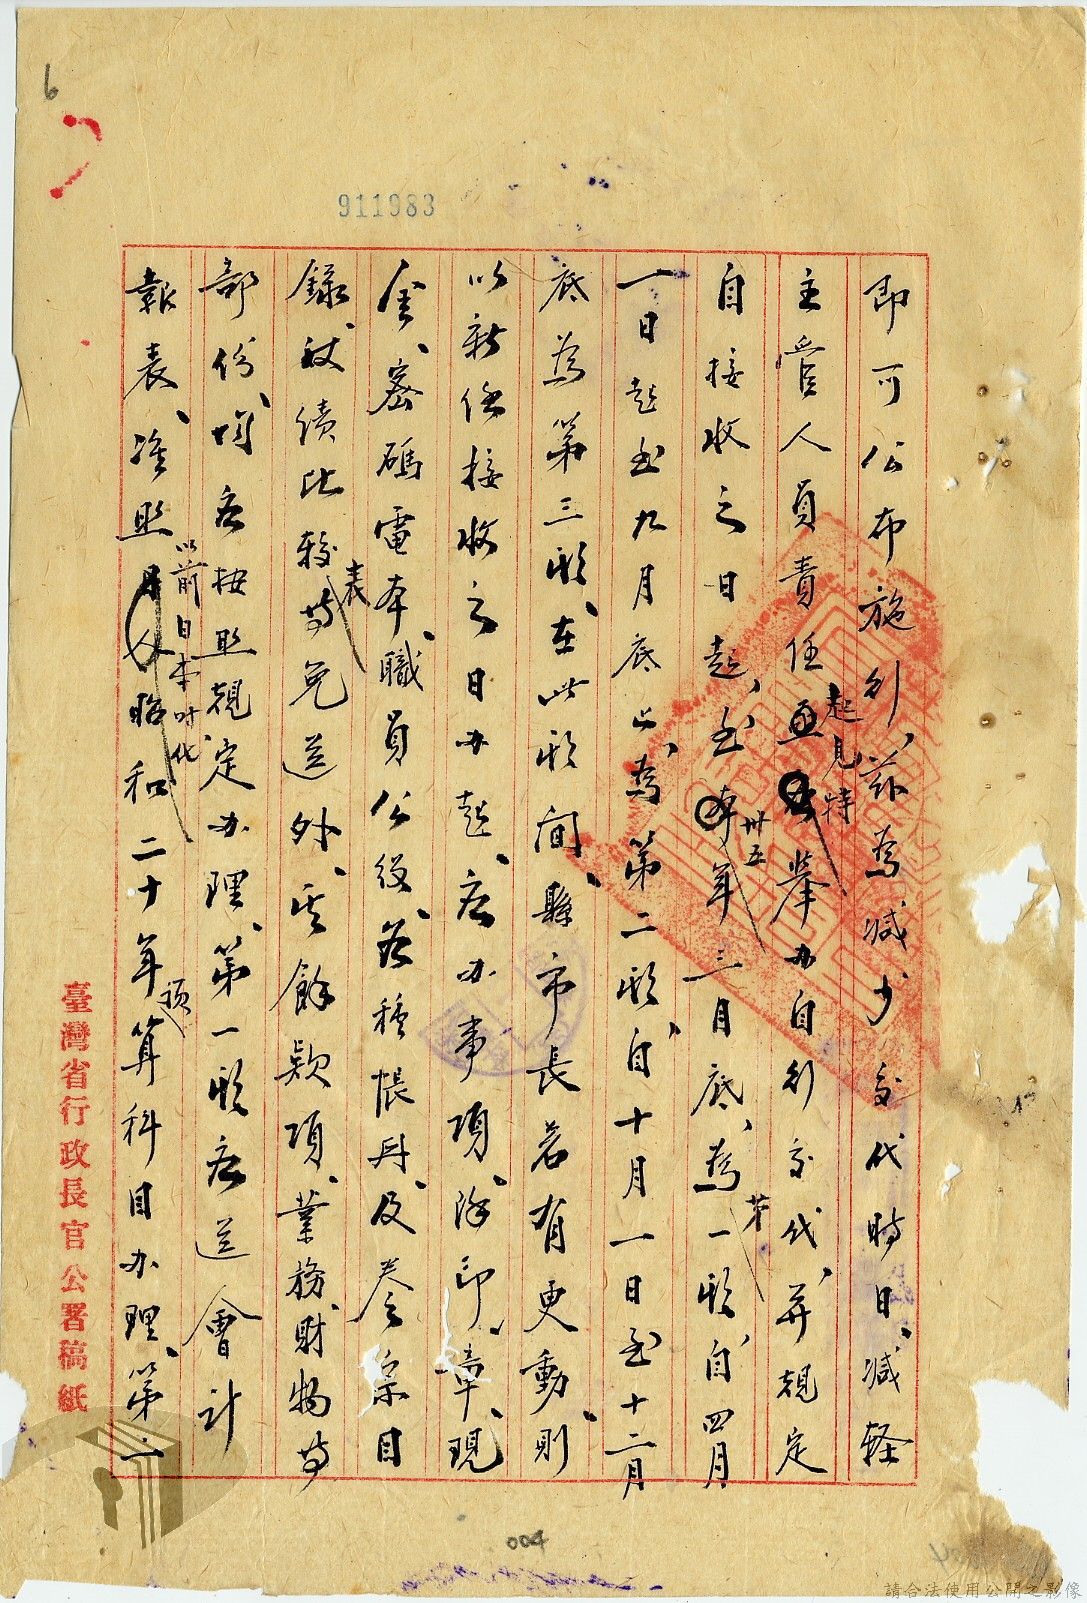 6
911983
即可公布施行、茲為減少交代時日、減輕
主管人員責任起見特舉办自行交代、并規定
自接收之日起、至卅五年三月底、為第一期、自四月
一日起至九月底止、為第二期、自十月一日至十二月
底為第三期、在此期間、縣市長若有更動、則
以新任接收之日办起、应办事項、除印章、現
金、密碼電本、職員公役、各種帳冊、及卷宗目
錄、政績比較表等免送外、其餘款項、業務財物等
部份、均应按照規定办理、第一期应送會計
報表、准照以前日本时代昭和二十年預算科目办理、第二
臺灣省行政長官公署稿紙
004
請合法使用公開之影像